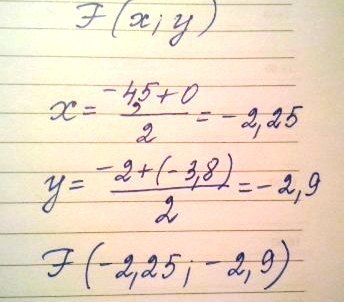 F(x; y)
x = (-4,5 + 0)/2 = -2,25
y = (-2 + (-3,8))/2 = -2,9
F(-2,25; -2,9)